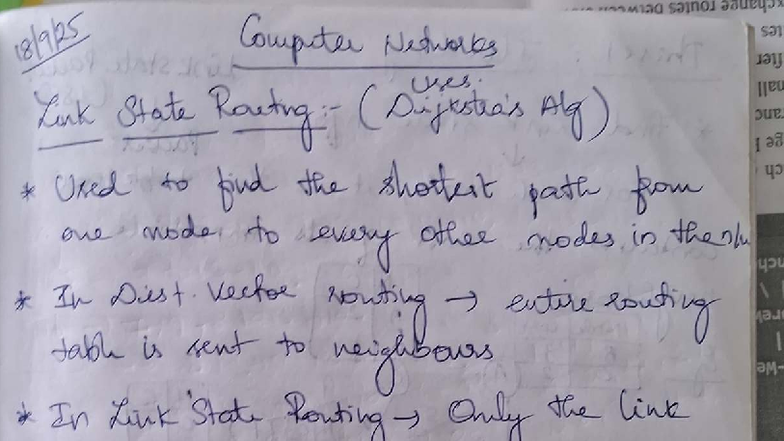 18/9/25
Computer Networks
uses.
Link State Routng:- (Dijkstra's Alg)
* Used to find the shortest path from
one node to every other nodes in the n/w
* In Dist. Vector routing → entire routing
table is sent to neighbours
* In Link State Routing → Only the link
xchange routes between
ties
fter
mall
ranc
ge
ch